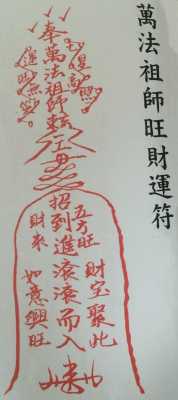 萬法祖師旺財運符
奉萬法祖師敕
五方旺
招到進滾滾而入
財來
財宝聚此
如意興旺